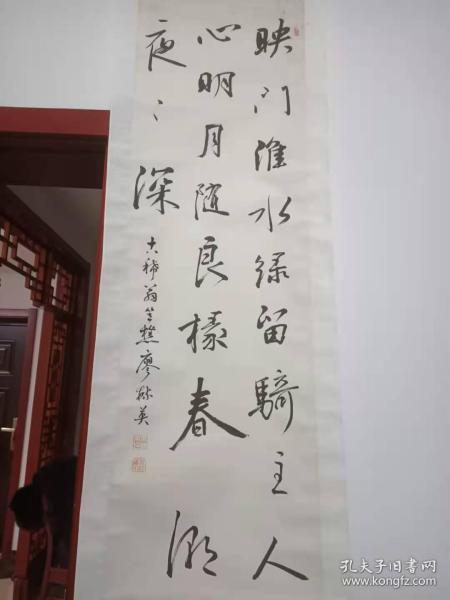 映门淮水绿留骑主人
心明月随良椽春潮
夜〻深
古稀翁笠樵廖𬟁英
孔夫子旧书网
www.kongfz.com